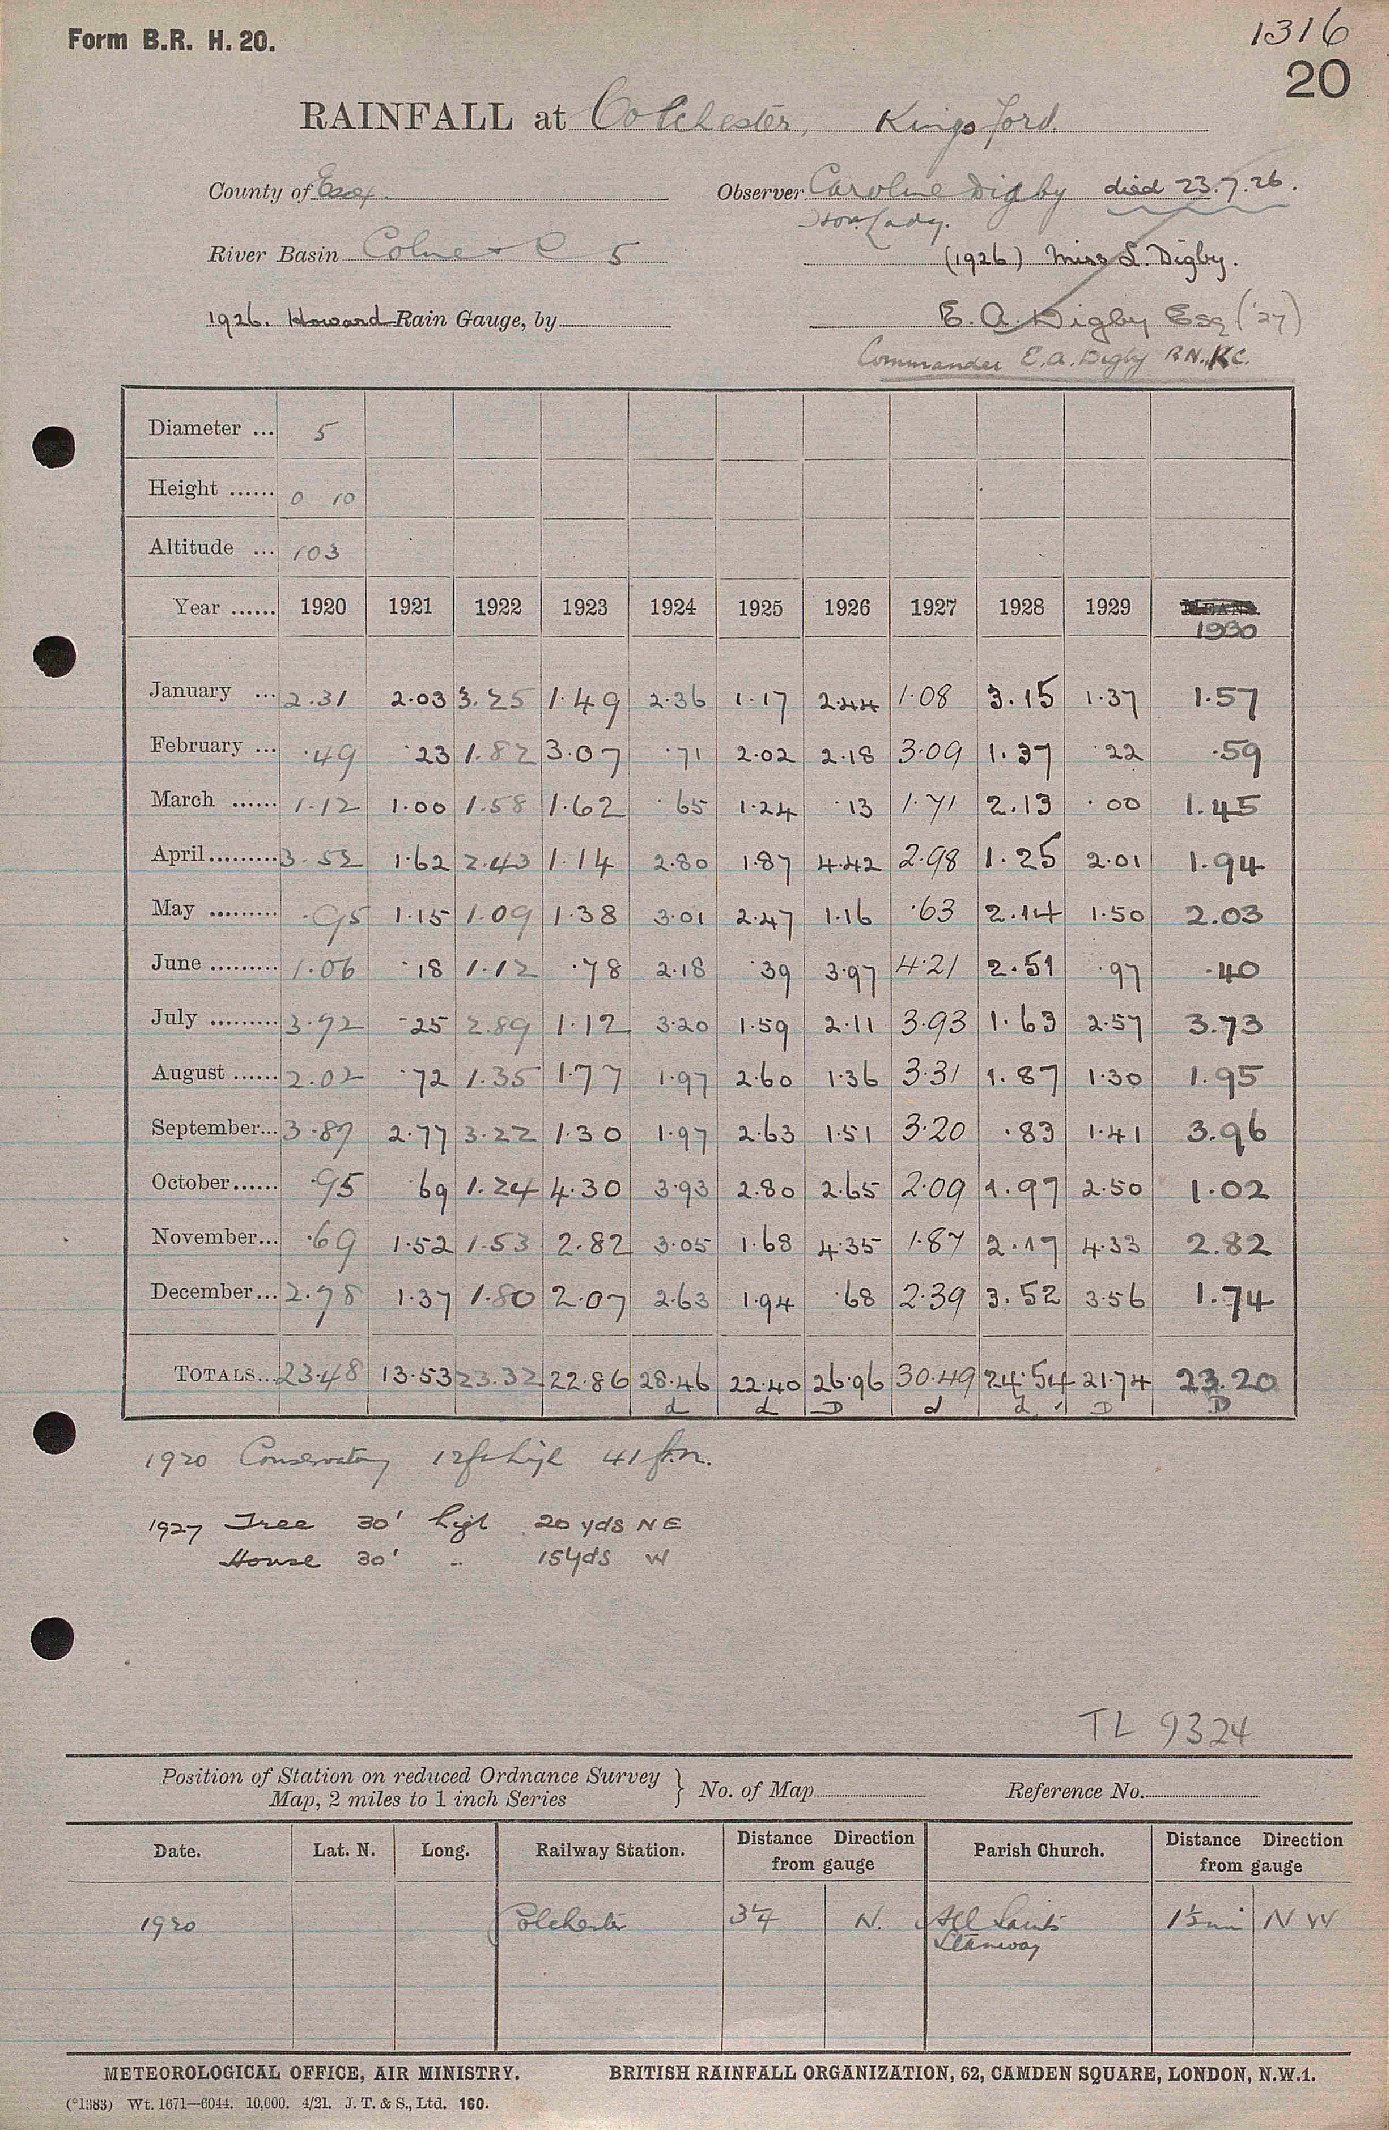 Form B.R. H. 20.
1316
20
RAINFALL at Colchester, Kingsford.
County of Essex. Observer Caroline Digby died 23.7.26.
Hon. Lady.
River Basin Colne & C 5 (1926) Miss L. Digby.
1926. Howard Rain Gauge, by E. A. Digby Esq ('27)
Commander E.A. Digby R.N., K.C.
Diameter ... 5
Height ...... 0 10
Altitude ... 103
Year ...... 1920 1921 1922 1923 1924 1925 1926 1927 1928 1929 MEANS
1930
January ... 2.31 2.03 3.25 1.49 2.36 1.17 2.44 1.08 3.15 1.37 1.57
February ... .49 .23 1.82 3.07 .71 2.02 2.18 3.09 1.37 .22 .59
March ...... 1.12 1.00 1.58 1.62 .65 1.24 .13 1.71 2.13 .00 1.45
April......... 3.52 1.62 2.43 1.14 2.80 1.87 4.42 2.98 1.25 2.01 1.94
May ......... .95 1.15 1.09 1.38 3.01 2.47 1.16 .63 2.14 1.50 2.03
June ......... 1.06 .18 1.12 .78 2.18 .39 3.97 4.21 2.51 .97 .40
July ......... 3.72 .25 2.89 1.12 3.20 1.59 2.11 3.93 1.63 2.57 3.73
August ...... 2.02 .72 1.35 1.77 1.97 2.60 1.36 3.31 1.87 1.30 1.95
September... 3.87 2.77 3.22 1.30 1.97 2.63 1.51 3.20 .83 1.41 3.96
October...... .95 .69 1.24 4.30 3.93 2.80 2.65 2.09 1.97 2.50 1.02
November... .69 1.52 1.53 2.82 3.05 1.68 4.35 1.87 2.17 4.33 2.82
December... 2.78 1.37 1.80 2.07 2.63 1.94 .68 2.39 3.52 3.56 1.74
TOTALS... 23.48 13.53 23.32 22.86 28.46 22.40 26.96 30.49 24.54 21.74 23.20
d d D d d D D
1920 Conservatory 12ft high 41 ft. n.
1927 Tree 30' high 20 yds NE
House 30' " 15 yds W
TL 9324
Position of Station on reduced Ordnance Survey Map, 2 miles to 1 inch Series } No. of Map Reference No.
Date. Lat. N. Long. Railway Station. Distance Direction from gauge Parish Church. Distance Direction from gauge
1920 Colchester 3¼ N. All Saints 1½ mi NW
Stanway
METEOROLOGICAL OFFICE, AIR MINISTRY. BRITISH RAINFALL ORGANIZATION, 62, CAMDEN SQUARE, LONDON, N.W.1.
(*1383) Wt. 1671—6044. 10,000. 4/21. J. T. & S., Ltd. 160.